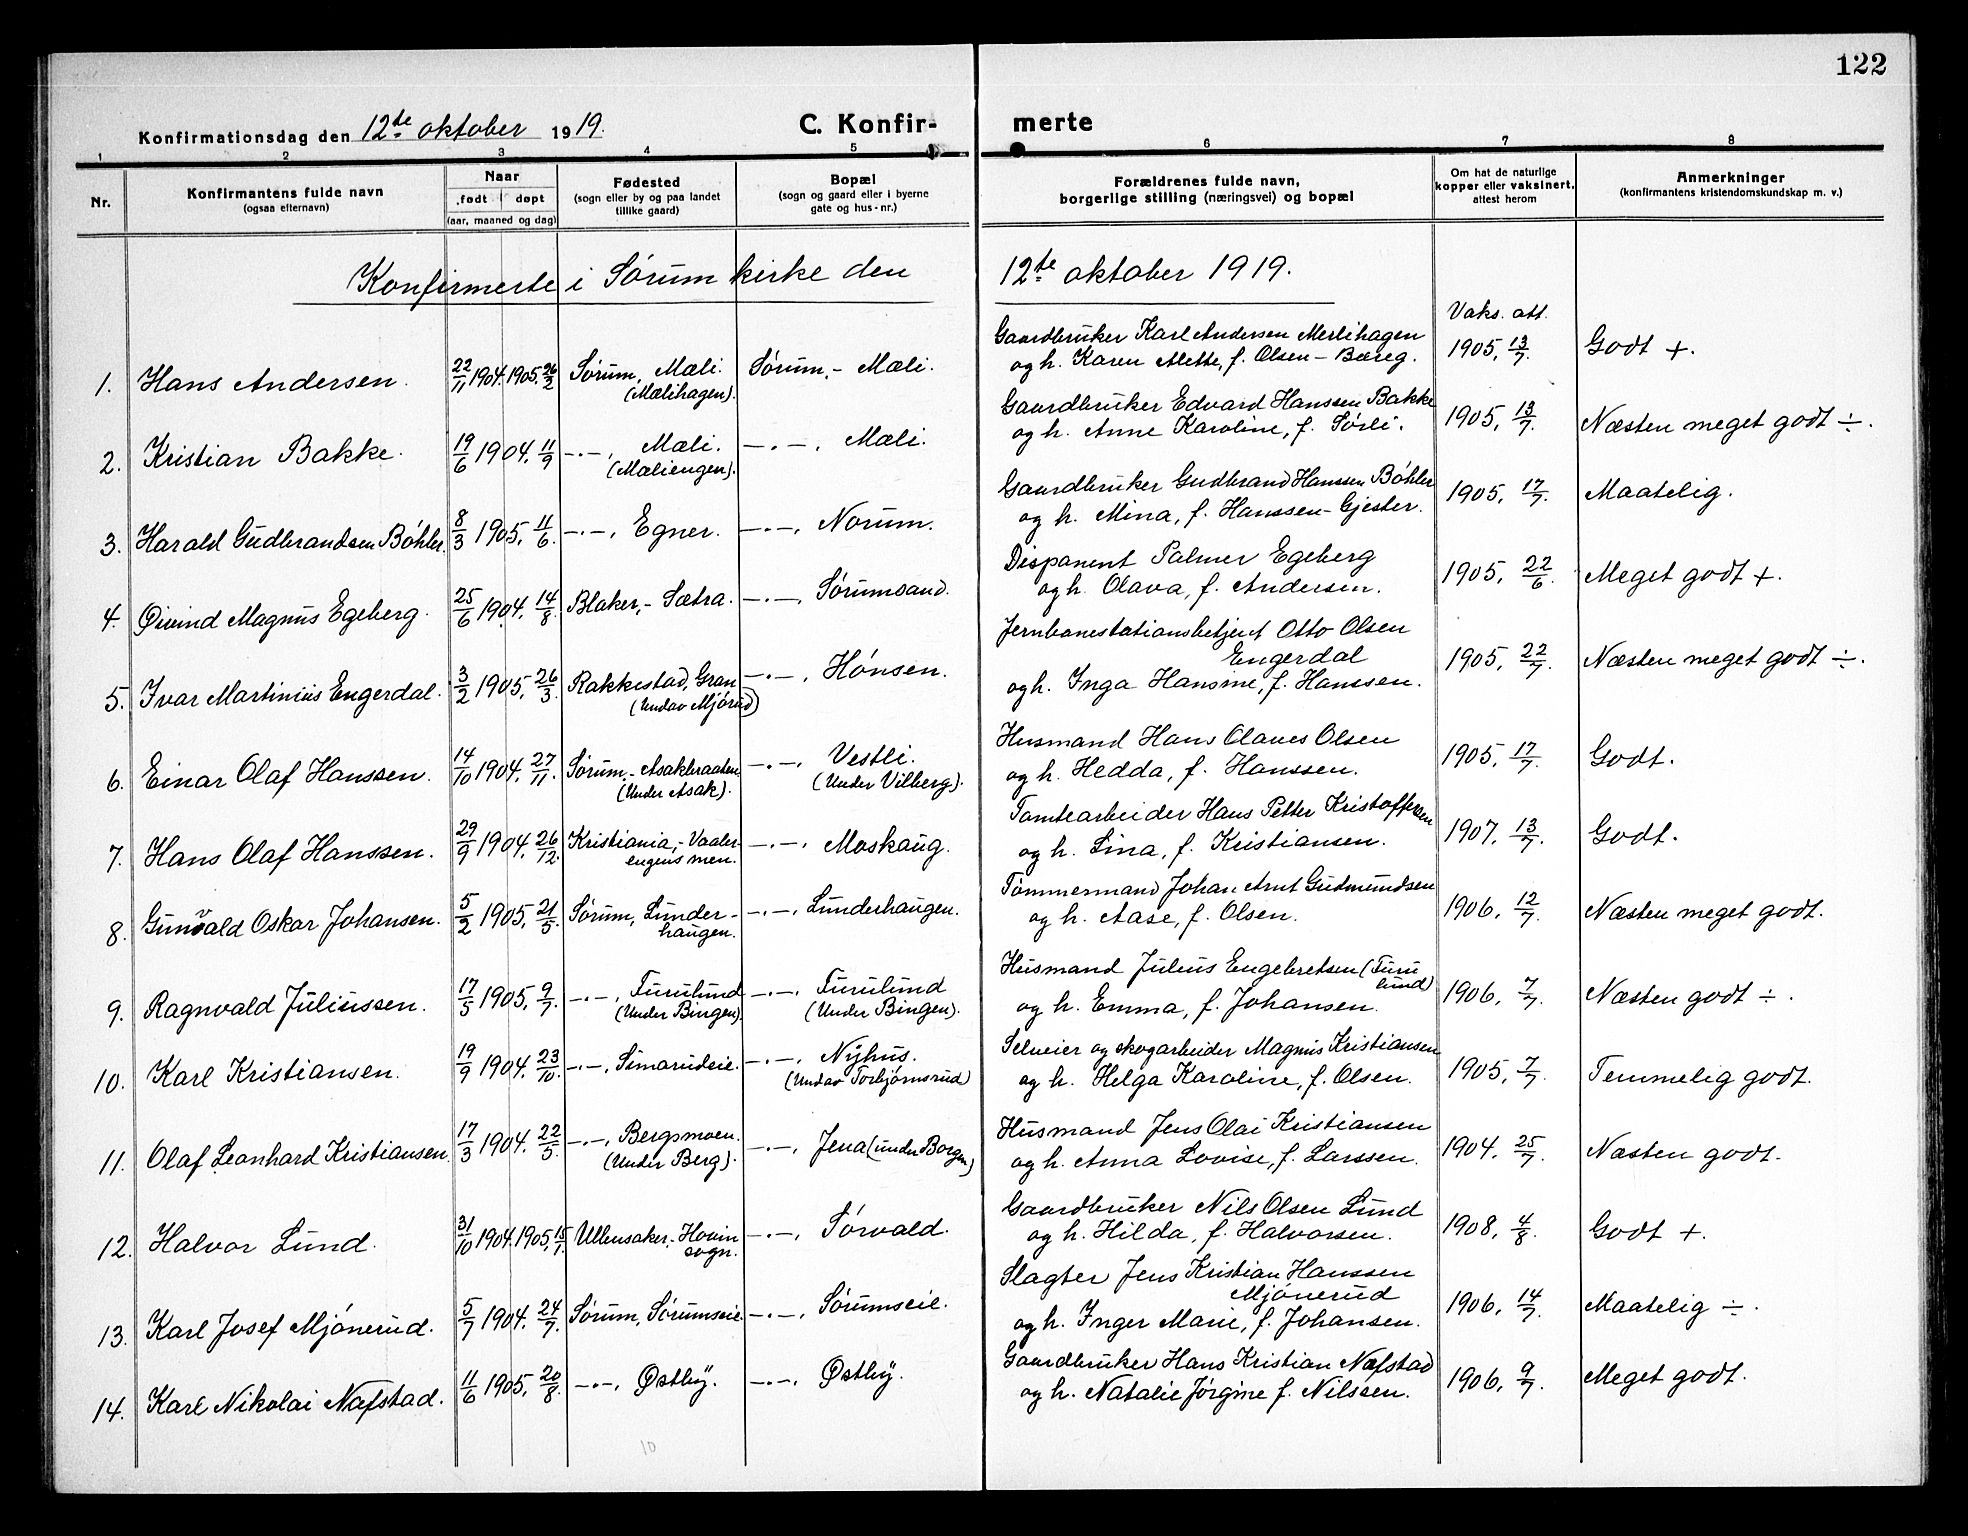 122
Konfirmationsdag den 12te oktober 1919. C. Konfir- merte
1 2 3 4 5 6 7 8
Nr. Konfirmantens fulde navn (ogsaa efternavn) Naar født døpt (aar, maaned og dag) Fødested (sogn eller by og paa landet tillike gaard) Bopæl (sogn og gaard eller i byerne gate og hus-nr.) Forældrenes fulde navn, borgerlige stilling (næringsvei) og bopæl Om hat de naturlige kopper eller vaksinert, attest herom Anmerkninger (konfirmantens kristendomskundskap m. v.)
Konfirmerte i Sørum kirke den 12te oktober 1919.
Vaks. att.
1. Hans Andersen. 22/11 1904. 1905. 26/2 Sørum, Mæli. (Mælihagen). Sørum, - Mæli. Gaardbruker Karl Andersen Merlihagen og h. Karen Mette, f. Olsen - Bæreg. 1905, 13/7. Godt +.
2. Kristian Bakke. 19/6 1904. 11/9 -.-, Mæli. (Mæliengen). -.-, Mæli. Gaardbruker Edvard Hanssen Bakke og h. Anne Karoline, f. Sørli. 1905, 13/7. Næsten meget godt ÷.
3. Harald Gudbrandsen Bøhler. 8/3 1905. 11/6. -.-, Egner. -.-, Norum. Gaardbruker Gudbrand Hanssen Bøhler og h. Mina, f. Hanssen - Gjester. 1905, 17/7. Maatelig.
4. Øivind Magnus Egeberg. 25/6 1904. 14/8. Blaker, - Sætra. -.-, Sørumsand. Disponent Palmer Egeberg og h. Olava, f. Andersen. 1905, 22/6. Meget godt +.
5. Ivar Martinius Engerdal. 3/2 1905. 26/3. Rakkestad, Gran (Undav Mjørud) -.-, Hønsen. Jernbanestationsbetjent Otto Olsen Engerdal og h. Inga Hansine, f. Hanssen. 1905, 22/7. Næsten meget godt ÷.
6. Einar Olaf Hanssen. 14/10 1904. 27/11. Sørum, - Asakbraaten (Under Asak). -.-, Vestli. (Under Vilberg). Husmand Hans Olaves Olsen og h. Hedda, f. Hanssen. 1905, 17/7. Godt.
7. Hans Olaf Hanssen. 29/9 1904. 26/12. Kristiania, - Vaalerengens men. -.-, Moskaug. Tomtearbeider Hans Petter Kristoffersen og h. Lina, f. Kristiansen. 1907, 13/7. Godt.
8. Gunvald Oskar Johansen. 5/2 1905. 21/5. Sørum, Lunderhaugen. -.-, Lunderhaugen. Tømmermand Johan Arnt Gudmundsen og h. Aase, f. Olsen. 1906, 12/7. Næsten meget godt.
9. Ragnvald Juliussen. 17/5 1905. 9/7. -.-, Furulund (Under Bingen) -.-, Furulund (Under Bingen). Husmand Julius Engebretsen (Furulund) og h. Emma, f. Johansen. 1906, 7/7. Næsten godt ÷.
10. Karl Kristiansen. 19/9 1904. 23/10. -.-, Simarudeie. -.-, Nyhus. (Undav Torbjørnsrud) Selveier og skogarbeider Magnus Kristiansen og h. Helga Karoline, f. Olsen. 1905, 7/7. Temmelig godt.
11. Olaf Leonhard Kristiansen. 17/3 1904. 22/5. -.-, Bergsmoen. (Under Berg). -.-, Jena (under Borgen) Husmand Jens Olai Kristiansen og h. Anna Lovise, f. Larssen. 1904, 25/7. Næsten godt.
12. Halvor Lund. 31/10 1904. 1905. 15/1. Ullensaker, - Hovin sogn. -.-, Sørvald. Gaardbruker Nils Olsen Lund og h. Hilda, f. Halvorsen. 1908, 4/8. Godt +.
13. Karl Josef Mjønerud. 5/7 1904. 24/7. Sørum, Sørumseie. -.-, Sørumseie. Slagter Jens Kristian Hanssen Mjønerud og h. Inger Marie, f. Johansen. 1906, 14/7. Maatelig ÷.
14. Karl Nikolai Nafstad. 11/6 1905. 20/8. -.-, Østby. -.-, Østby. Gaardbruker Hans Kristian Nafstad og h. Natalie Jørgine f. Nilssen. 1906, 9/7. Meget godt.
10